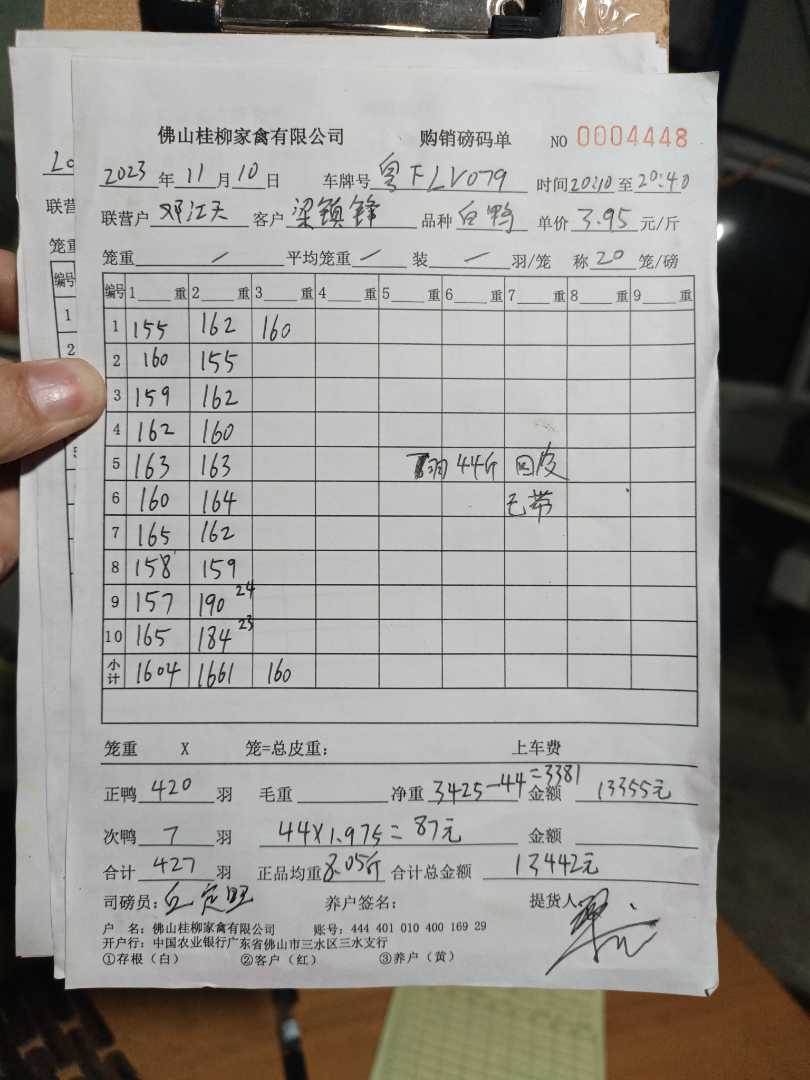 佛山桂柳家禽有限公司 购销磅码单 NO 0004448
2023 年 11 月 10 日 车牌号 粤FLV079 时间 20:10 至 20:40
联营户 邓江天 客户 梁镇锋 品种 白鸭 单价 3.95 元/斤
笼重 / 平均笼重 / 装 / 羽/笼 称 20 笼/磅
编号 1 重 2 重 3 重 4 重 5 重 6 重 7 重 8 重 9 重
1 155 162 160
2 160 155
3 159 162
4 162 160
5 163 163 7羽44斤
6 160 164
7 165 162
8 158 159
9 157 190 24
10 165 184 23
小计 1604 1661 160
笼重 X 笼=总皮重: 上车费
正鸭 420 羽 毛重 净重 3425-44=3381 金额 13355元
次鸭 7 羽 44X1.975=87元 金额
合计 427 羽 正品均重 8.05斤 合计总金额 13442元
司磅员: 养户签名: 提货人
户 名: 佛山桂柳家禽有限公司 账号: 444 401 010 400 169 29
开户行: 中国农业银行广东省佛山市三水区三水支行
①存根(白) ②客户(红) ③养户(黄)
20
联营
笼重
编号
1
2